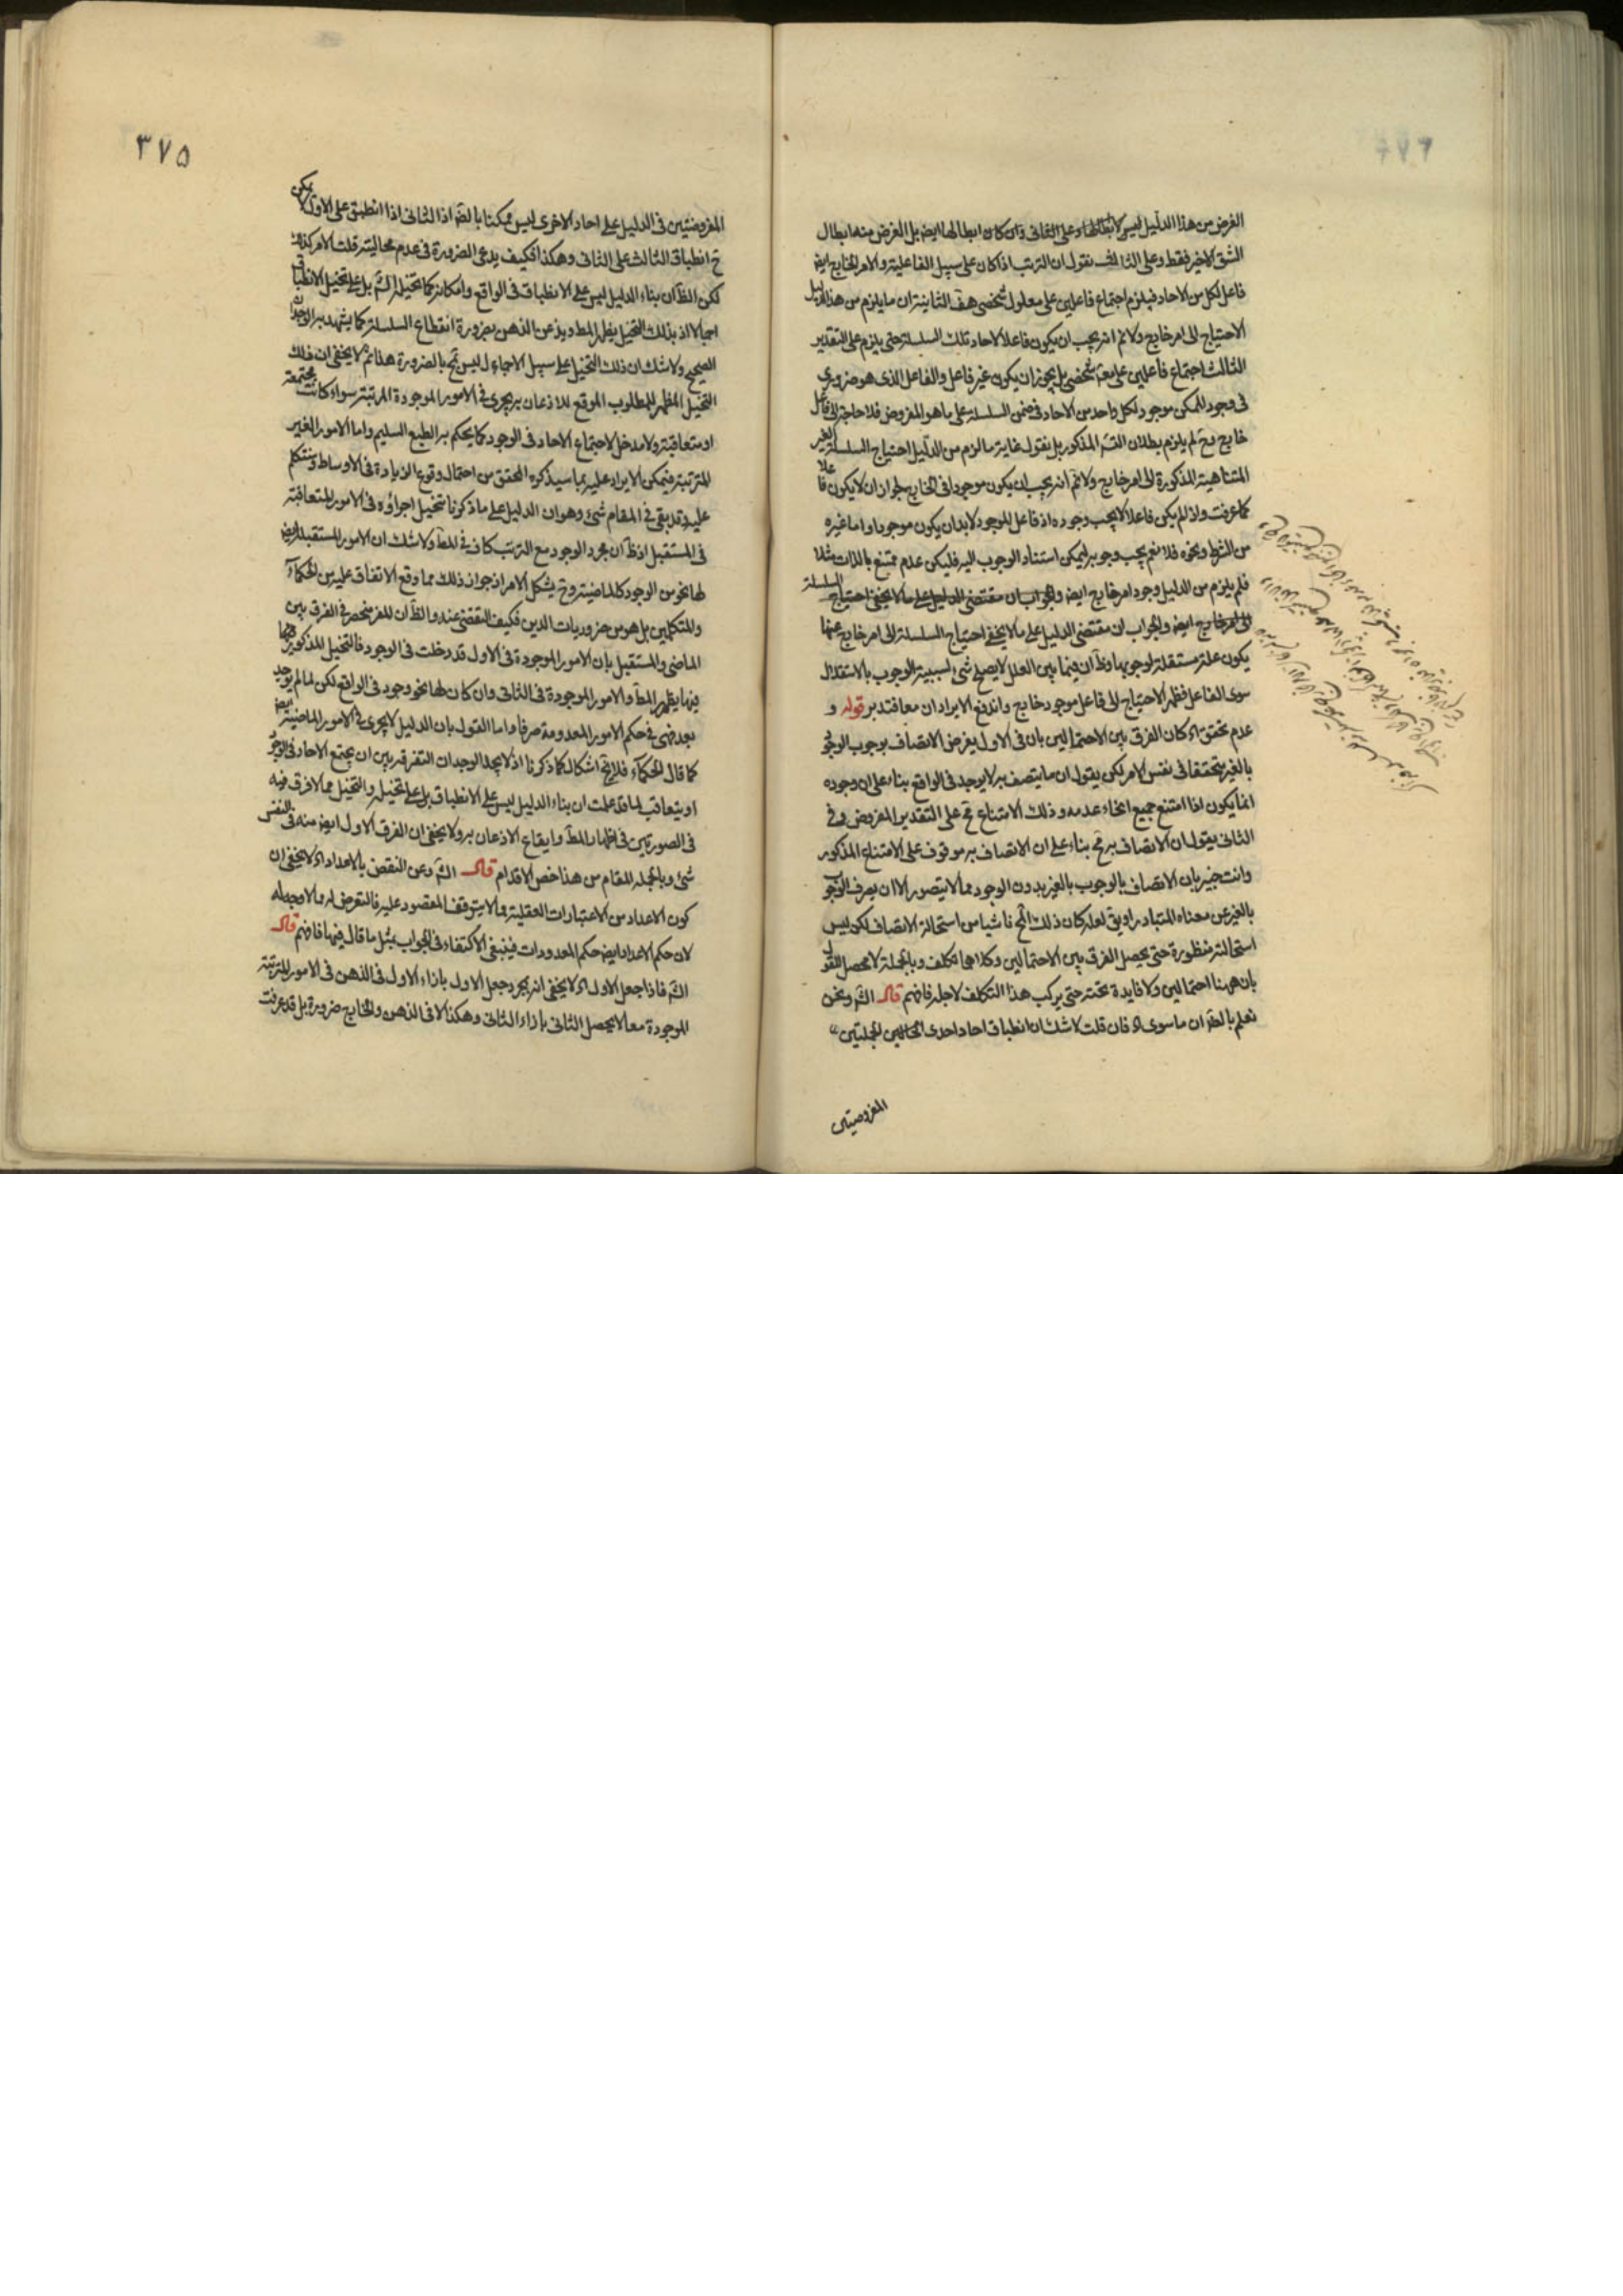 الغرض من هذا الدليل ليس لابطالها وعلى الثانى وان كان ابطالها ايض بل الغرض منه ابطال
الشق الاخير فقط وعلى الثالث نقول ان الترتب اذا كان على سبيل الفاعلية والامر الخارج ايض
فاعل لكل من الاحاد فيلزم اجتماع فاعلين على معلول شخصى هف الثانية ان ما يلزم من هذا الدليل
الاحتياج الى امر خارج ولا نم انه يجب ان يكون فاعلا لاحاد تلك السلسلة حتى يلزم على التقدير
الثالث اجتماع فاعلين على شخصى بل يجوز ان يكون غير فاعل والفاعل الذى هو ضرورى
فى وجود الممكن موجود لكل واحد من الاحاد فى ضمن السلسلة على ما هو المفروض فلا حاجة الى فاعل
خارج وح لم يلزم بطلان التس المذكور بل نقول غاية ما لزم من الدليل احتياج السلسلة الغير
المتناهية المذكورة الى امر خارج ولا نم انه يجب ان يكون موجودا فى الخارج لجواز ان لا يكون فاعلا
كما عرفت واذ لم يكن فاعلا لا يجب وجوده اذ فاعل الموجود لا بد ان يكون موجودا واما غيره
من الشرط ونحوه فلا نعم يجب وجوبه ليمكن استناد الوجوب اليه فليكن عدم ممتنع بالذات مثلا
فلم يلزم من الدليل وجود امر خارج ايض والجواب ان مقتضى الدليل على ما لا يخفى احتياج السلسلة
الى امر خارج ايض والجواب ان مقتضى الدليل على ما لا يخفى احتياج السلسلة الى امر خارج عنها
يكون علة مستقلة لوجوبها وظ ان فيما بين العلل لا يصلح شئ لسببية الوجوب بالاستقلال
سوى الفاعل فظهر الاحتياج الى فاعل موجود خارج واندفع الايرادان معا فتدبر قوله و
عدم تحقق اه كان الفرق بين الاحتمالين بان فى الاول يفرض الاتصاف بوجوب الوجود
بالغير متحققا فى نفس الامر لكن يقول ان ما يتصف به لا يوجد فى الواقع بناء على ان وجوده
انما يكون اذا امتنع جميع انحاء عدمه وذلك الامتناع مح على التقدير المفروض وفى
الثانى يقول ان الاتصاف به مح بناء على ان الاتصاف به موقوف على الامتناع المذكور
وانت خبير بان الاتصاف بالوجوب بالغير بدون الوجود مما لا يتصور الا ان يصرف الوجوب
بالغير عن معناه المتبادر او يق لعله كان ذلك المح ناشيا من استحالة الاتصاف لكن ليس
استحالته منظورة حتى يحصل الفرق بين الاحتمالين وكلاهما تكلف وبالجملة لا محصل للقول
بان ههنا احتمالين ولا فايدة تحته حتى يركب هذا التكلف لاجله فافهم قال الش ونحن
نعلم بالضر ان ما سوى اه فان قلت لا شك ان انطباق احاد احدى الجملتين
المفروضتين
٣٧٥
المفروضتين فى الدليل على احاد الاخرى ليس ممكنا بالضه اذ الثانى اذا انطبق على الاول لا يمكن
ح انطباق الثالث على الثانى وهكذا فكيف يدعى الضرورة فى عدم محاليته قلت الامر كذلك
لكن الظ ان بناء الدليل ليس على الانطباق فى الواقع وامكانه كما تخيله الش بل على تخيل الانطباق
اجمالا اذ بذلك التخيل يظهر المط ويذعن الذهن بضرورة انقطاع السلسلة كما يشهد به الوجدان
الصحيح ولا شك ان ذلك التخيل على سبيل الاجمال ليس بمح بالضرورة هذا ثم لا يخفى ان ذلك
التخيل المظهر للمطلوب الموقع للاذعان به يجرى فى الامور الموجودة المرتبة سواء كانت مجتمعة
او متعاقبة ولا مدخل لاجتماع الاحاد فى الوجود كما يحكم به الطبع السليم واما الامور الغير
المترتبة فيمكن الايراد عليه بما سيذكره المحقق من احتمال وقوع الزيادة فى الاوساط وسنتكلم
عليه وقد بقى فى المقام شئ وهو ان الدليل على ما ذكرنا تتخيل اجراؤه فى الامور المتعاقبة
فى المستقبل اذ ظ ان مجرد الوجود مع الترتب كاف فى المط ولا شك ان الامور المستقبلة ايض
لها نحو من الوجود كالماضية وح يشكل الامر اذ جواز ذلك مما وقع الاتفاق عليه من الحكماء
والمتكلمين بل هو من ضروريات الدين فكيف التقصى عنه والظ ان المفر منحصر فى الفرق بين
الماضى والمستقبل بان الامور الموجودة فى الاول قد دخلت فى الوجود فالتخيل المذكور فيها
فيها يظهر المط والامور الموجودة فى الثانى وان كان لها نحو وجود فى الواقع لكن لما لم يوجد
بعد فهى فى حكم الامور المعدومة صرفا واما القول بان الدليل لا يجرى فى الامور الماضية ايض
كما قال الحكماء فلا يخ اشكال كما ذكرنا اذ لا يجد الوجدان التفرقة بين ان يجتمع الاحاد فى الوجود
او يتعاقب لما قد علمت ان بناء الدليل ليس على الانطباق بل على تخيله والتخيل مما لا فرق فيه
فى الصورتين فى اظهار المط وايقاع الاذعان به ولا يخفى ان الفرق الاول ايض منه فى النفس
شئ وبالجملة المقام من هذا خص الاقدام قال الش وعن النقض بالاعداد اه لا يخفى ان
كون الاعداد من الاعتبارات العقلية مما لا يتوقف المقصود عليه فالتعرض له مما لا وجه له
لان حكم الاعداد ايض حكم المعدودات فينبغى الاكتفاء فى الجواب بمثل ما قال فيها فافهم قال
الش فاذا جعل الاول اه لا يخفى انه بمجرد جعل الاول بازاء الاول فى الذهن فى الامور المترتبة
الموجودة معا لا يحصل الثانى بازاء الثانى وهكذا لا فى الذهن والخارج ضرورة بل قد عرفت